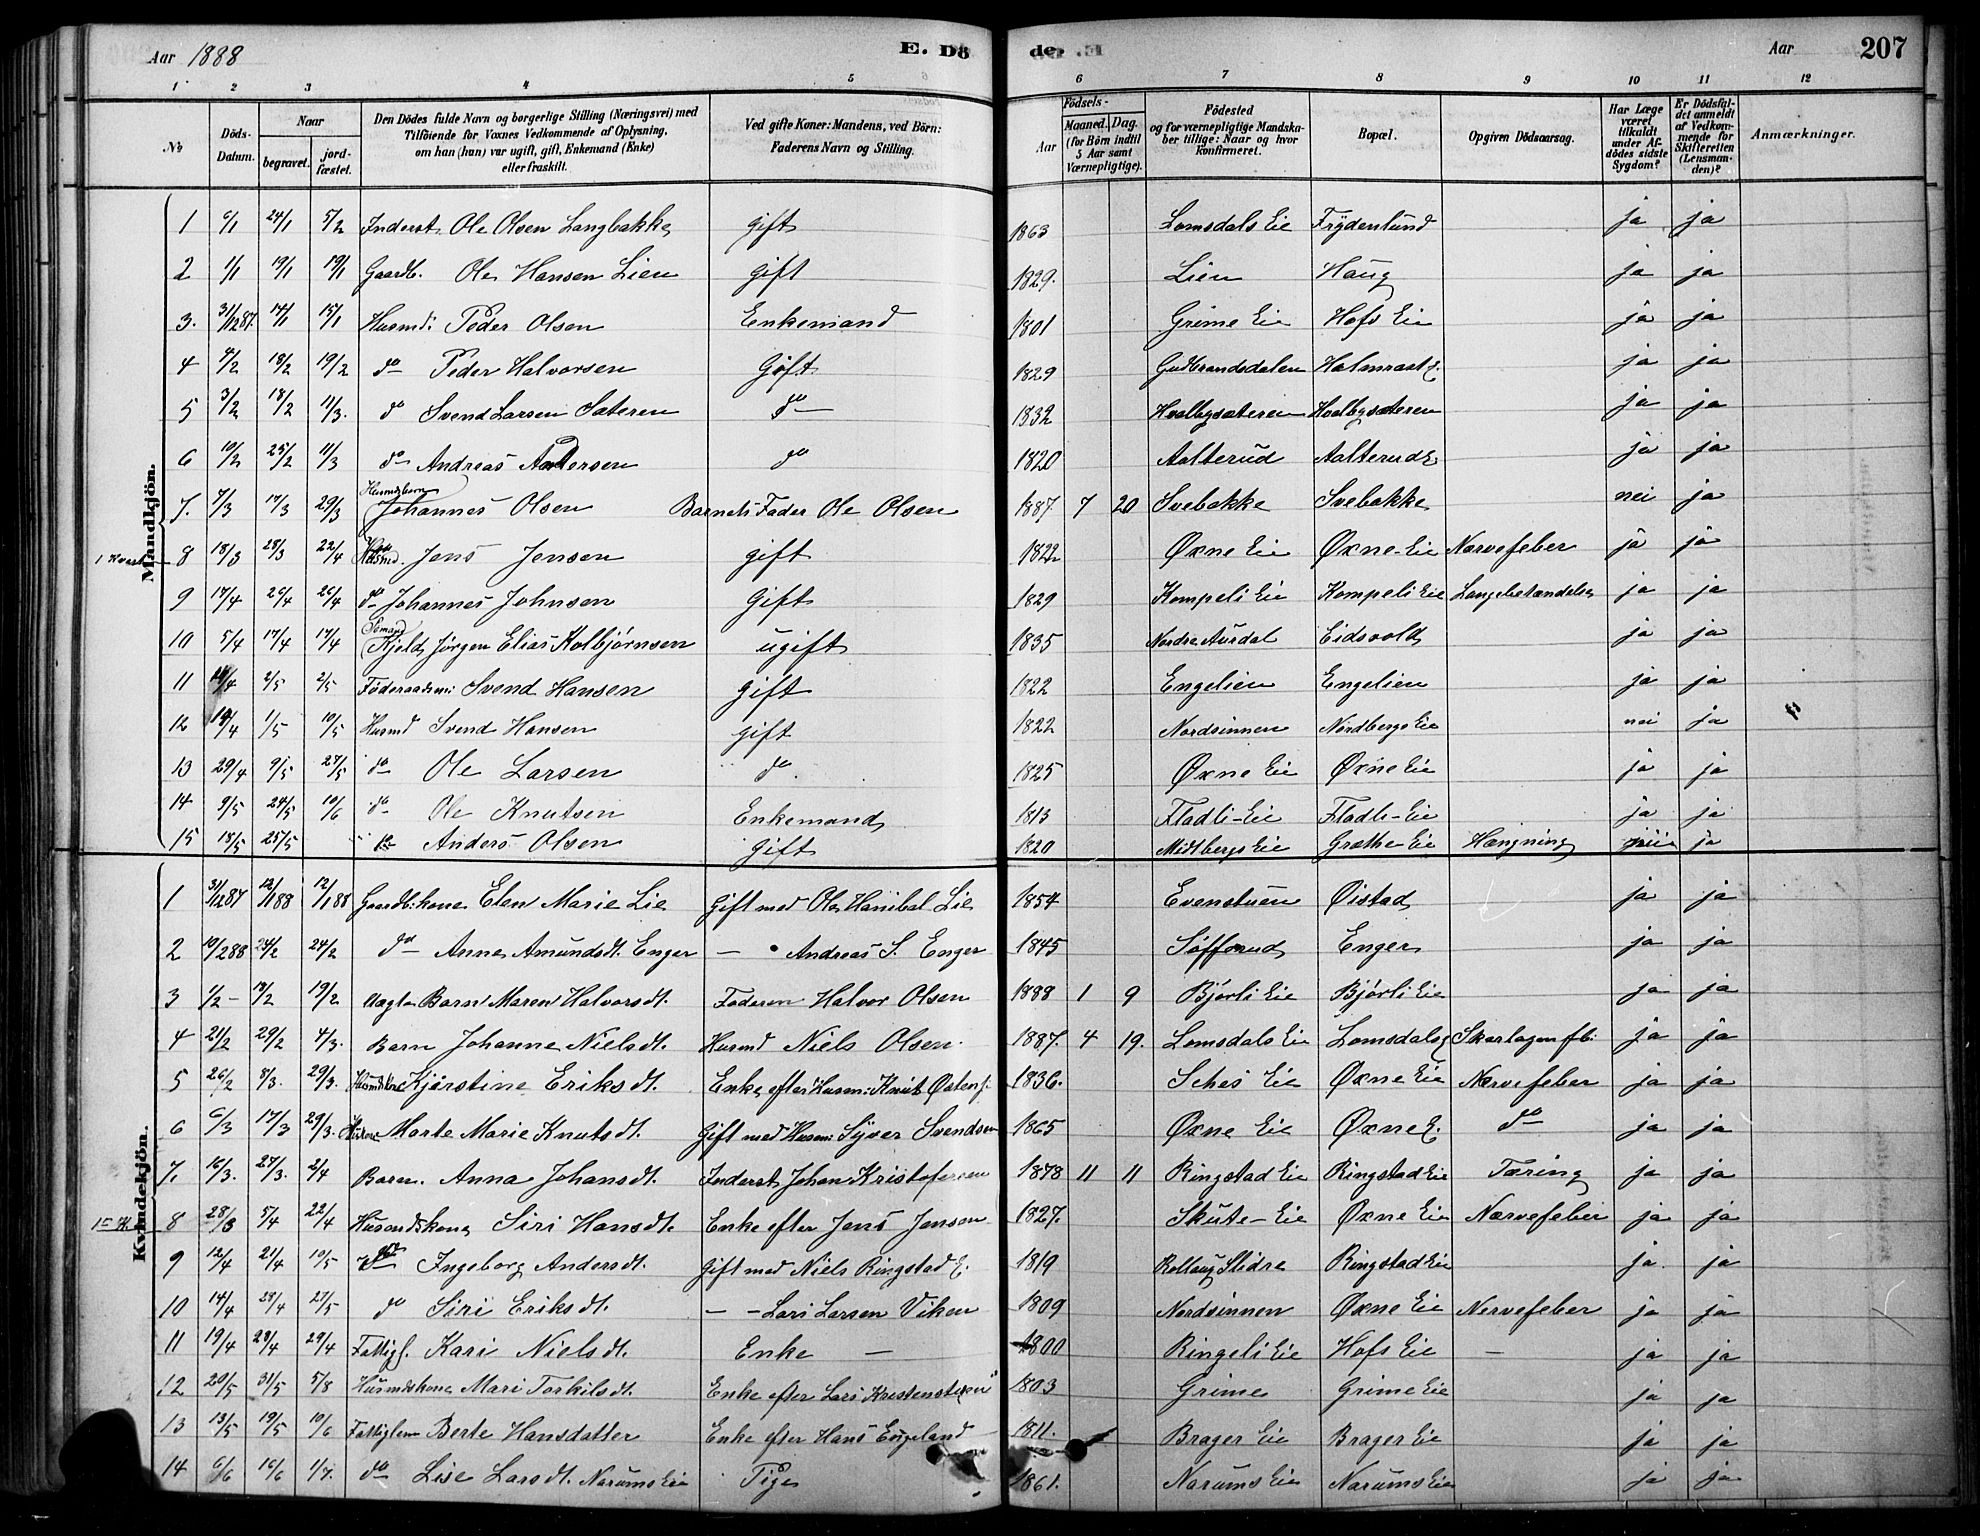 Aar 1888 E. Dö de .E Aar 207
1 2 3 4 5 6 7 8 9 10 11 12
No Döds-Datum. Naar begravet. jordfæstet. Den Dödes fulde Navn og borgerlige Stilling (Næringsvei) med Tilföiende for Voxnes Vedkommende af Oplysning, om han (hun) var ugift, gift, Enkemand (Enke) eller fraskilt. Ved gifte Koner: Mandens, ved Börn: Faderens Navn og Stilling. Födsels- Aar Maaned. Dag. (for Börn indtil 5 Aar samt Værnepligtige). Födested og for værnepligtige Mandskaber tillige: Naar og hvor konfirmeret. Bopæl. Opgiven Dödsaarsag. Har Læge været tilkaldt under Afdödes sidste Sygdom? Er Dödsfaldet anmeldt af Vedkommende for Skifteretten (Lensmanden)? Anmærkninger.
Mandkjön.
1 6/1 24/1 5/2 Inderst Ole Olsen Langbakke gift 1863 Lomsdals Eie Frydenlund ja ja
2 1/1 19/1 19/1 Gaardb. Ole Hansen Lien gift 1829. Lien Haug ja ja
3. 31/12 87. 14/1 15/1 Husmd: Peder Olsen Enkemand 1801 Grime Eie Hofs Eie ja ja
4 4/2 18/2 19/2 do Peder Halvorsen Gift 1829 Gudbrandsdalen Halmrast E. ja ja
5 3/2 18/2 11/3. do Svend Larsen Sæteren do 1832 Hvalbysæteren Hvalbysæteren ja ja
6 10/2 25/2 11/3 do Andreas Andersen do 1820 Aalterud Aalterud E. ja ja
7. 7/3 17/3 29/3 Husmdsbarn Johannes Olsen Barnets Fader Ole Olsen 1887 7 20 Svebakke Svebakke nei ja
8 18/3 28/3 22/4 Husmd. Jens Jensen gift 1822 Øxne Eie Øxne-Eie Nervefeber ja ja
9 17/4 26/4 26/4 do Johannes Johnsen Gift 1829 Kompeli Eie Kompeli Eie Lungebetændelse ja ja
10 5/4 17/4 17/4 Sömand Kjeld Jørgen Elias Kolbjørnsen ugift 1835 Nordre Aurdal Eidsvold ja ja
11 2/5 2/5 Föderaadsm: Svend Hansen gift 1822 Engelien Engelien ja ja
12 19/4 1/5 10/5 Husmd Svend Hansen gift 1822 Nordsinnen Nordbergs Eie nei ja
13 29/4 9/5 27/5 do Ole Larsen do. 1825 Øxne Eie Øxne Eie ja ja
14 9/5 24/5 10/6 do Ole Knutsen Enkemand 1813 Fladli-Eie Fladli-Eie ja ja
15 18/5 25/5 do Anders Olsen gift 1820 Midtbergs Eie Græthe-Eie Hængning nei ja
Kvindekjön.
1 31/12 87 12/1 88 12/1 88 Gaardb. kone Elen Marie Lie Gift med Ole Hanibal Lie 1854 Evenstuen Øistad ja ja
2 10/2 88 24/2 24/2 do Anne Amundsdt. Enger — Andreas S. Enger 1845 Söfferud Enger ja ja
3 1/2 - 18/2 19/2 uægte Barn Maren Halvorsdt. Faderen Halvor Olsen 1888 1 9 Bjørli Eie Bjørli Eie ja ja
4 21/2 29/2 4/3. Barn Johanne Nielsdt. Husmd Niels Olsen. 1887. 4 19. Lomsdals Eie Lomsdals E Skarlagensfb: ja ja
5 26/2 8/3. 29/3. Kjerstine Eriksdt. Enke efter Husm: Knut Østens. 1836. Sehes Eie Øxne Eie Nervefeber ja ja
6 6/3 17/3 29/3. Marte Marie Knutsdt. Gift med Husm: Syver Svendsen 1865 Øxne Eie Øxne E. do ja ja
7. 16/3. 27/3. 2/4 Barn. Anna Johansdt. Inderst Johan Kristofersen 1878 11 11 Ringstad Eie Ringstad Eie Tæring ja ja
8 28/3 5/4 22/4 Husmdskone Siri Hansdt. Enke efter Jens Jensen 1827. Skute-Eie Øxne Eie Nervefeber ja ja
9 12/4 21/4 10/5 do Ingeborg Andersdt. Gift med Niels Ringstad E. 1819 Slidre Ringstad Eie ja ja
10 14/4 28/4 27/5 do Siri Eriksdt. — - Lars Larsen Viken 1809 Nordsinnen Øxne Eie Nervefeber ja ja
11 19/4 28/4 29/4 Fattigl. Kari Nielsdt. Enke — 1800 Ringeli Eie Hofs Eie — ja ja
12 20/5 31/5 5/8 Husmdskone Mari Torkilsdt. Enke efter Lars 1803 Grime Grime Eie ja ja
13 13/5 19/5 10/6 Fattiglem Berte Hansdatter Enke efter Hans Engeland 1811. Brager Eie Brager Eie ja ja
14 6/6 16/6 1/7. do Lise Larsdt. Narums Eie Pige 1861. Narums Eie Narums Eie ja ja